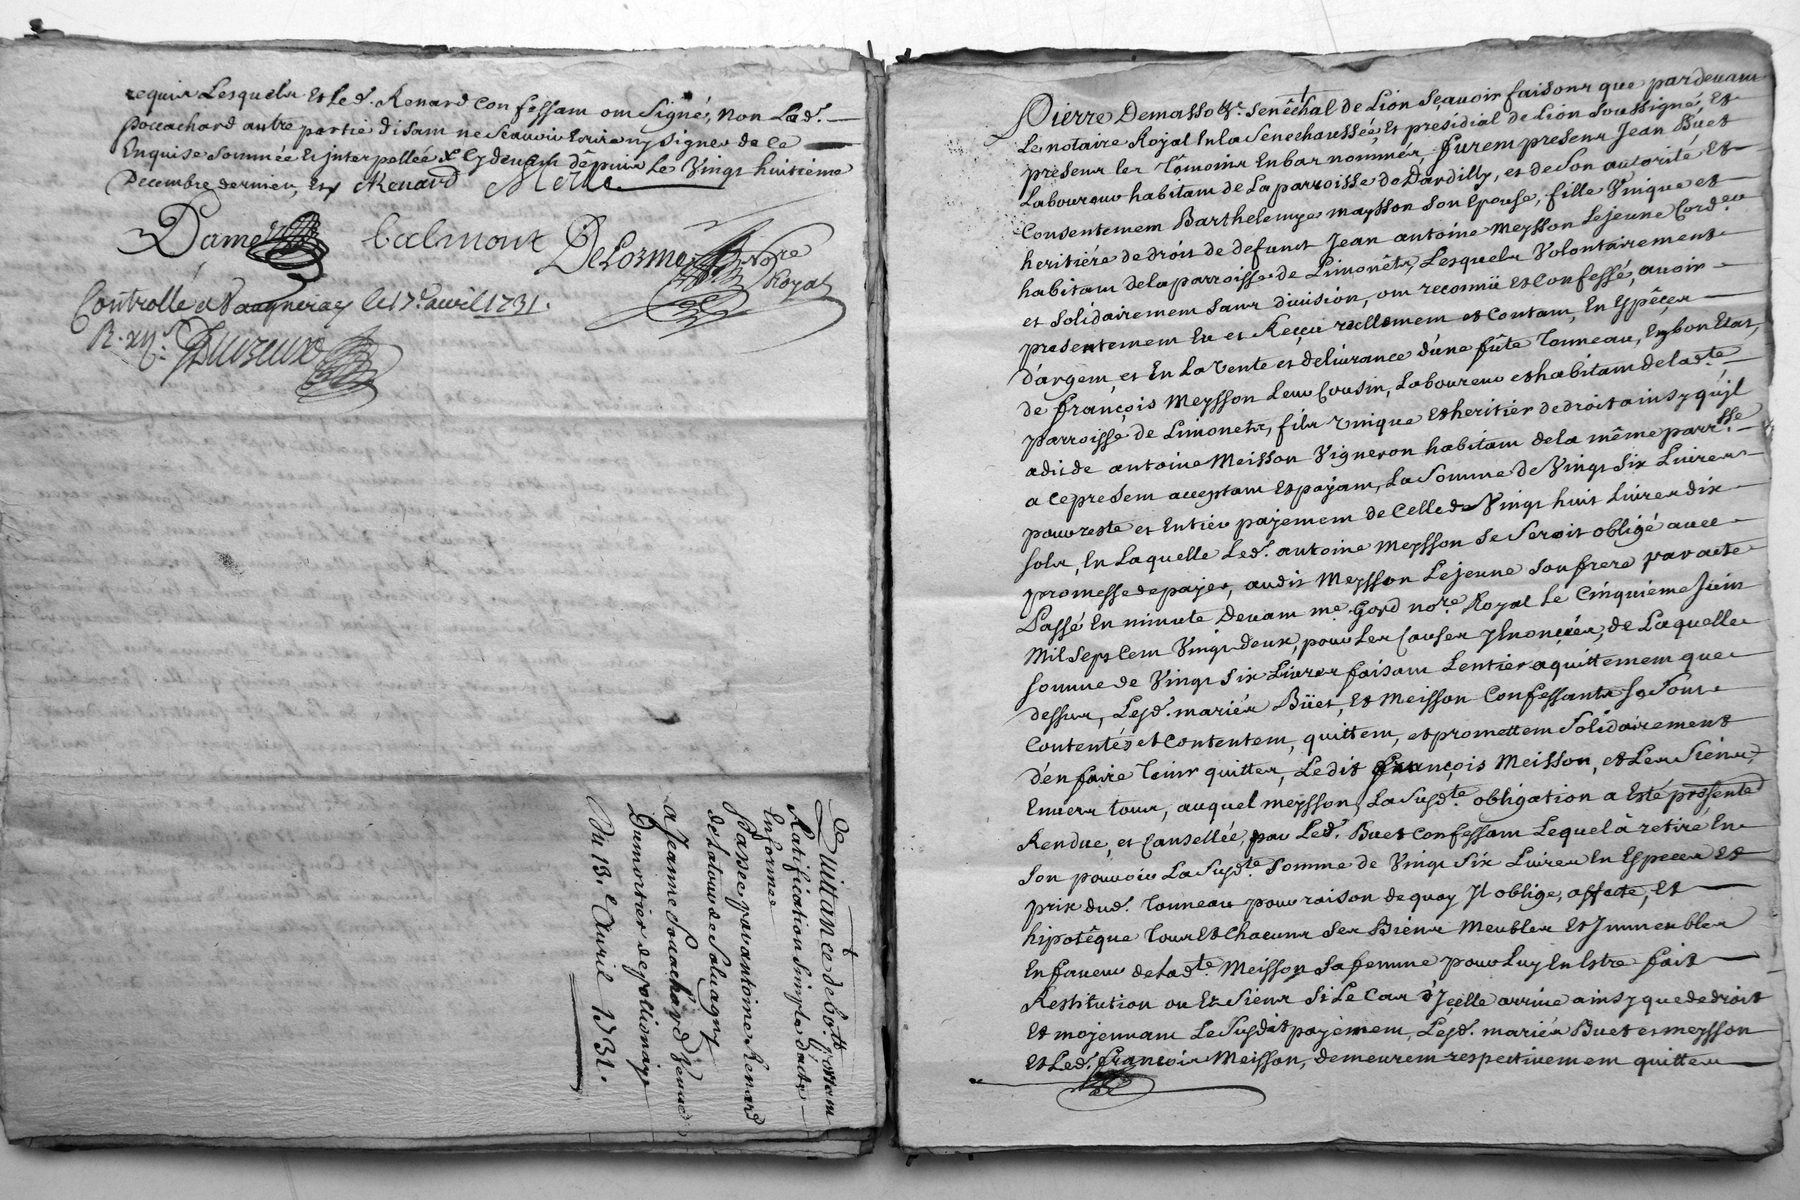 requis Lesquels Et Led. Renard Confessant ont Signé, Non Lad.
pocachard autre partie disant ne Scavoir Ecrire ny Signer de ce
Enquise Sommée Et interpellée Cydevant depuis Le Vingt huitieme
Decembre dernier, Renard
Dame Calmont DeLorme Nore
Royal
Controllé a Vaugneray le 17e avril 1731.
R. xij s.
De
Quittance de 60 lt portant
Ratification Simple dacte
En forme
Passée par antoine Renard
de La tour de Salvagny
a Jeanne Pocachard Veuve
Dumortier de pollionay
Du 13.e Avril 1731.
Pierre Demasso &c. Senêchal de Lion Sçavoir faisons que pardevant
Le notaire Royal En la Senechaussée Et presidial de Lion Soussigné, Et
presens les Têmoins En bas nommés, furent presens Jean Buet
Laboureur habitant de La parroisse de Dardilly, et de Son autorité Et
Consentement Barthelemye maysson Son Epouse, fille Vnique et
heritiére de droit de defunct Jean antoine Meysson Lejeune Cord.er
habitant dela parroisse de Limonêts, Lesquels Volontairement
et Solidairement Sans division, ont reconnû Et Confessé, avoir
presentement Eu et Reçeu reellement et Contant, En Espêçes
d'argent, et En La Vente et delivrance d'une fûte Tonneau, En bon Etat,
de françois Meysson Leur Cousin, Laboureur et habitant de lad.te
parroisse de Limonets, fils Vnique Et heritier de droit ainsy qu'jl
a dit de antoine Meisson Vigneron habitant de la même parr.sse
a ce present acceptant Et payant, La Somme de Vingt Six Livres
pour reste et Entier payement de Celle de Vingt huit Livres dix
sols, En Laquelle Led. antoine Meysson Se Seroit obligé avec
promesse de payer, audit Meysson Lejeune Son frere par acte
Passé En minute Devant me. Gord no.re Royal Le Cinquiéme Juin
Mil Sept Cent Vingt deux, pour Les Causes y Enonçées, de Laquelle
Somme de Vingt Six Livres faisant Lentier aquittement que
dessus, Lesd. mariés Büet, Et Meisson Confessants Se Sont
Contentés et Contentent, quittent, et promettent Solidairement
d'en faire Tenir quitter, Ledit françois Meisson, et Les Siens,
Envers tous, auquel meysson La Susd.te obligation a Esté presentée
Rendue, et Cansellée, par Led. Buet Confessant Lequel à retiré En
Son pouvoir La Susd.te Somme de Vingt Six Livres En Especes Et
prix dud. Tonneau pour raison de quoy Jl oblige, affecte, Et
hipotêque Tous Et Chacuns Ses Biens Meubles Et Jmmeubles
En faveur de Lad.te Meisson Sa femme pour Luy En Estre fait
Restitution ou Ez Siens Si Le Cas d'Jçelle arrive ainsy que de droit
Et moyennant Le Susdit payement, Lesd. mariés Buet et meysson
Et Led. françois Meisson, demeurent respectivement quittes